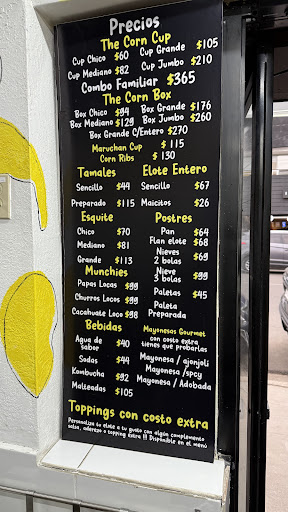 Precios
The Corn Cup
Cup Chico $60 Cup Grande $105
Cup Mediano $82 Cup Jumbo $210
Combo Familiar $365
The Corn Box
Box Chico $94 Box Grande $176
Box Mediano $129 Box Jumbo $260
Box Grande C/Entero $270
Maruchan Cup $ 115
Corn Ribs $ 130
Tamales
Sencillo $44
Preparado $115
Elote Entero
Sencillo $67
Maicitos $26
Esquite
Chico $70
Mediano $81
Grande $113
Postres
Pan $64
Flan elote $68
Nieves 2 bolas $69
Nieve 3 bolas $99
Paletas $45
Paleta
Preparada
Munchies
Papas Locas $99
Churros Locos $99
Cacahuate Loco $98
Bebidas
Agua de sabor $40
Sodas $44
Kombucha $92
Malteadas $105
Mayonesas Gourmet
con costo extra
tienes que probarlas
Mayonesa / ajonjoli
Mayonesa /spcy
Mayonesa / Adobada
Toppings con costo extra
Personaliza tu elote a tu gusto con algún complemento
salsa, aderezo o topping extra !! Disponible en el menú